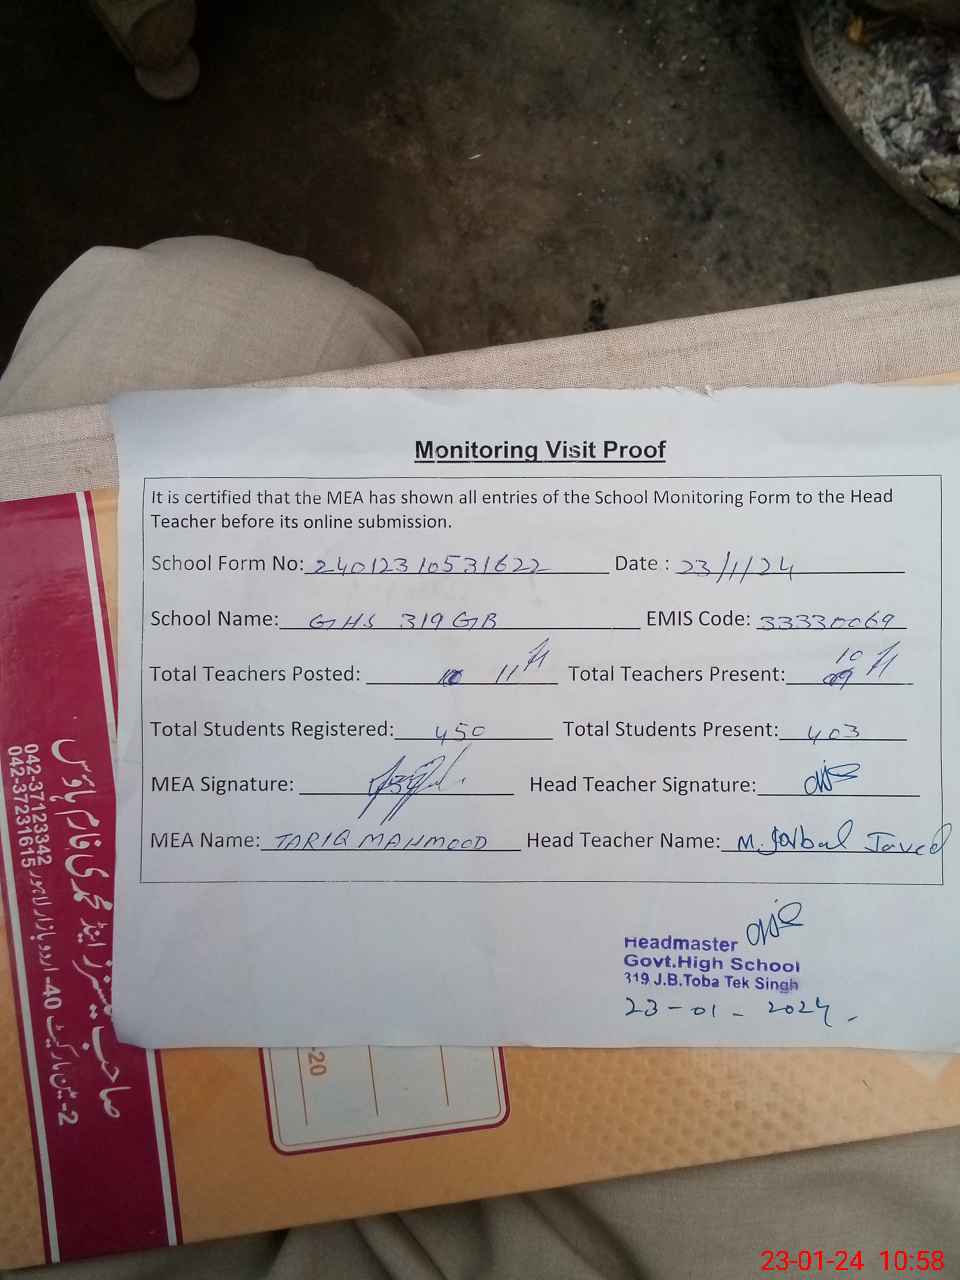 Monitoring Visit Proof
It is certified that the MEA has shown all entries of the School Monitoring Form to the Head
Teacher before its online submission.
School Form No: 24012310531622 Date : 23/1/24
School Name: GHS 319 GB EMIS Code: 33330069
Total Teachers Posted: 11 Total Teachers Present: 10
Total Students Registered: 450 Total Students Present: 403
MEA Signature: Head Teacher Signature:
MEA Name: TARIQ MAHMOOD Head Teacher Name: M. Javed
Headmaster
Govt.High School
319 J.B.Toba Tek Singh
23-01-2024.
صاحب سنز اینڈ محمدی فارم ہاؤس
2-مین مارکیٹ 40-اردو بازار لاہور
042-37123342
042-37231615
-20
23-01-24 10:58